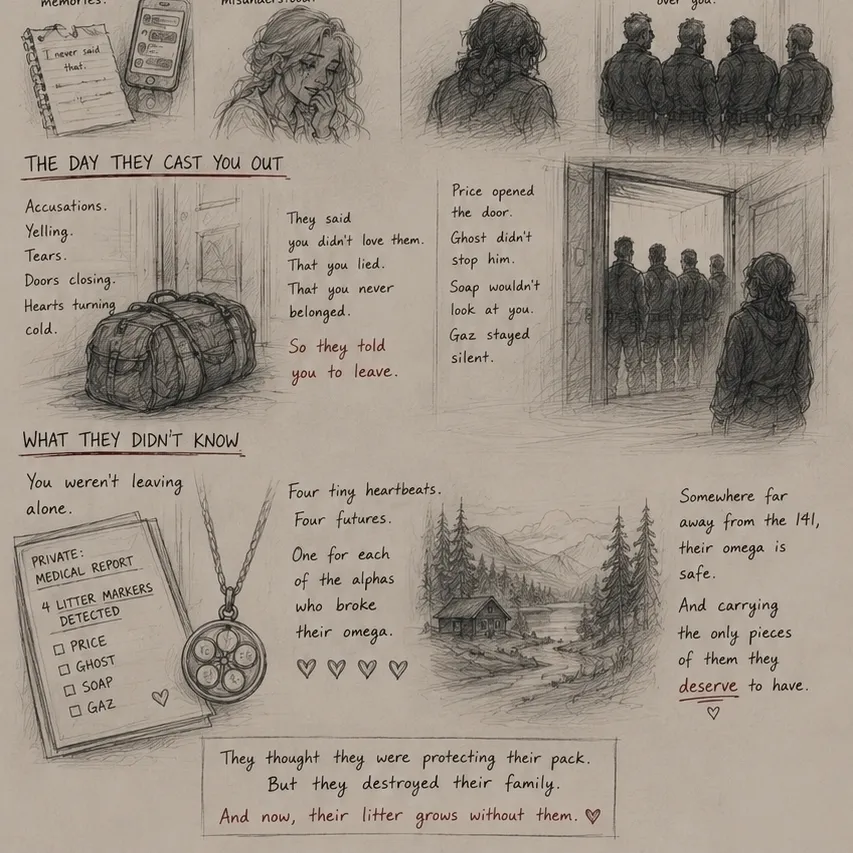 memories.
misunderstood.
over you.
I never said
that.
THE DAY THEY CAST YOU OUT
Accusations.
Yelling.
Tears.
Doors closing.
Hearts turning
cold.
They said
you didn't love them.
That you lied.
That you never
belonged.
So they told
you to leave.
Price opened
the door.
Ghost didn't
stop him.
Soap wouldn't
look at you.
Gaz stayed
silent.
WHAT THEY DIDN'T KNOW
You weren't leaving
alone.
PRIVATE:
MEDICAL REPORT
4 LITTER MARKERS
DETECTED
PRICE
GHOST
SOAP
GAZ
Four tiny heartbeats.
Four futures.
One for each
of the alphas
who broke
their omega.
Somewhere far
away from the 141,
their omega is
safe.
And carrying
the only pieces
of them they
deserve to have.
They thought they were protecting their pack.
But they destroyed their family.
And now, their litter grows without them.